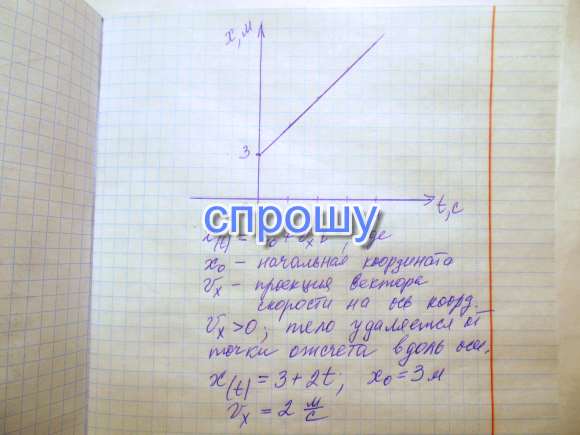 x, м
3
t, с
спрошу
x(t) = x₀ + υₓt, где
x₀ – начальная координата
υₓ – проекция вектора
скорости на ось коорд.
υₓ > 0; тело удаляется от
точки отсчета вдоль оси.
x(t) = 3 + 2t; x₀ = 3 м
υₓ = 2 м/с